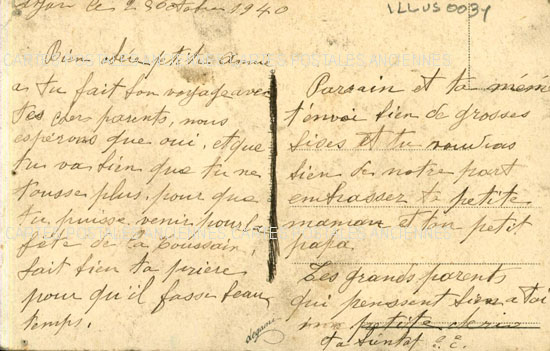 le 2 8 Octobre 1940
ILLUS 0034
Bien chère petite
as tu fait bon voyage avec
tes chers parents, nous
espérons que oui, et que
tu va bien que tu ne
tousse plus, pour que
tu puisse venir pour la
fête de la Toussain,
fait bien ta prière
pour qu'il fasse beau
temps.
Parrain et ta mémé
t'envoi bien de grosses
bises et tu voudras
bien de notre part
embrassez ta petite
maman et ton petit
papa.
Les grands parents
qui penssent bien a toi
petite
a bientot